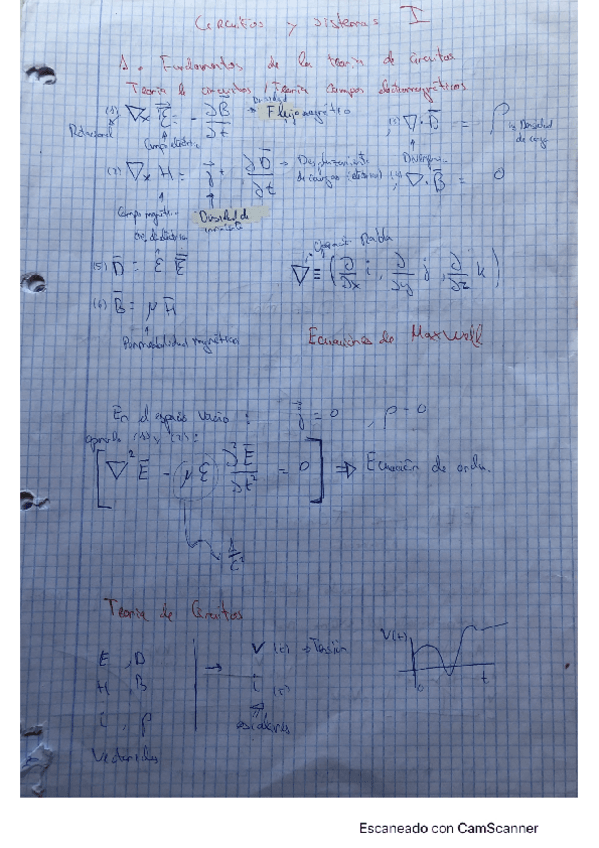 Circuitos y Sistemas I
1. Fundamentos de la teoría de circuitos
Teoría de circuitos / Teoría campos electromagnéticos
(1) ∇ x E = - ∂B/∂t → Densidad Flujo magnético
Rotacional
Campo eléctrico
(3) ∇ · D = ρ → Densidad de carga
Divergen.
(2) ∇ x H = j + ∂D/∂t → Desplazamiento de cargas
(4) ∇ · B = 0
Campo magnético
Densidad de
(5) D = ε E
Operador Nabla
∇ ≡ (∂/∂x i, ∂/∂y j, ∂/∂z k)
(6) B = μ H
Permeabilidad magnética
Ecuaciones de Maxwell
En el espacio vacío : j = 0 , ρ = 0
(1) y (2) :
[∇² E - με ∂²E/∂t² = 0] ⇒ Ecuación de onda.
1/c²
Teoría de Circuitos
E , D
H , B
i , ρ
Vectoriales
→
V (t) → Tensión
i (t)
escalares
V(t)
0
t
Escaneado con CamScanner